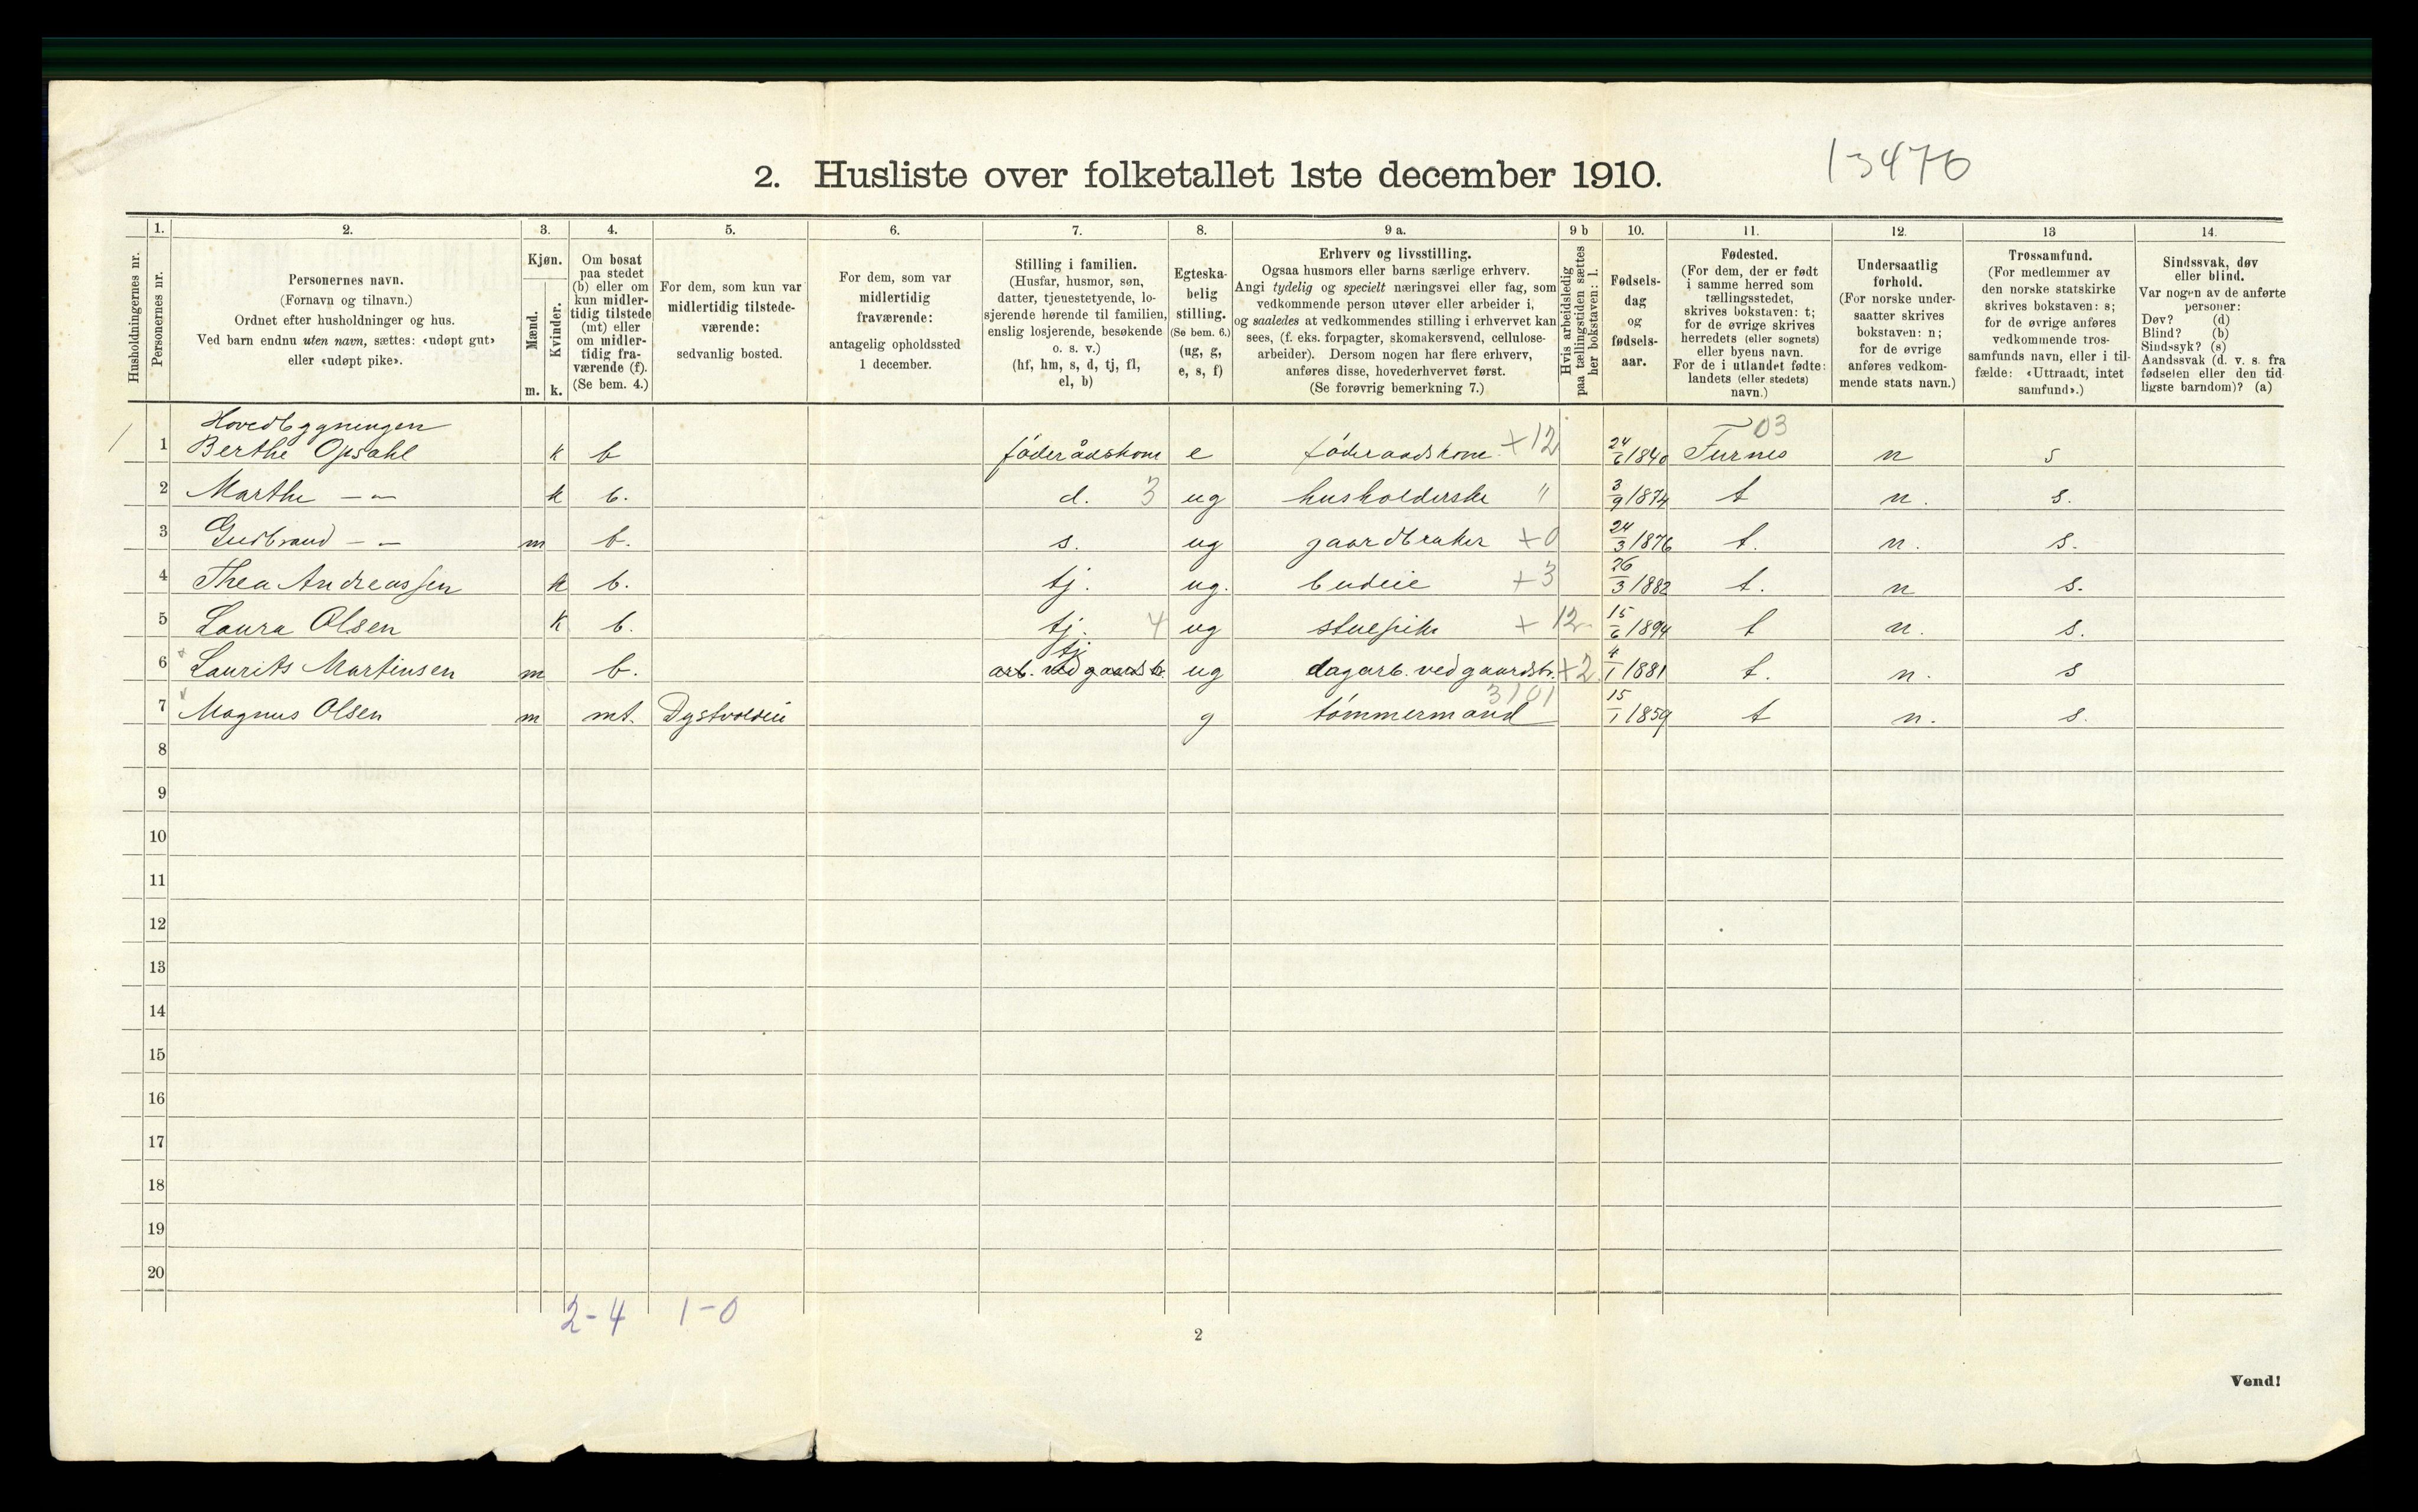 13476
2. Husliste over folketallet 1ste december 1910.
1. 2. 3. 4. 5. 6. 7. 8. 9 a. 9 b 10. 11. 12. 13 14.
Husholdningernes nr.
Personernes nr.
Personernes navn.
(Fornavn og tilnavn.)
Ordnet efter husholdninger og hus.
Ved barn endnu uten navn, sættes: «udøpt gut»
eller «udøpt pike».
Kjøn.
Mænd.
Kvinder.
m. k.
Om bosat
paa stedet
(b) eller om
kun midler-
tidig tilstede
(mt) eller
om midler-
tidig fra-
værende (f).
(Se bem. 4.)
For dem, som kun var
midlertidig tilstede-
værende:
sedvanlig bosted.
For dem, som var
midlertidig
fraværende:
antagelig opholdssted
1 december.
Stilling i familien.
(Husfar, husmor, søn,
datter, tjenestetyende, lo-
sjerende hørende til familien,
enslig losjerende, besøkende
o. s. v.)
(hf, hm, s, d, tj, fl,
el, b)
Egteska-
belig
stilling.
(Se bem. 6.)
(ug, g,
e, s, f)
Erhverv og livsstilling.
Ogsaa husmors eller barns særlige erhverv.
Angi tydelig og specielt næringsvei eller fag, som
vedkommende person utøver eller arbeider i,
og saaledes at vedkommendes stilling i erhvervet kan
sees, (f. eks. forpagter, skomakersvend, cellulose-
arbeider). Dersom nogen har flere erhverv,
anføres disse, hovederhvervet først.
(Se forøvrig bemerkning 7.)
Hvis arbeidsledig
paa tællingstiden sættes
her bokstaven: l.
Fødsels-
dag
og
fødsels-
aar.
Fødested.
(For dem, der er født
i samme herred som
tællingsstedet,
skrives bokstaven: t;
for de øvrige skrives
herredets (eller sognets)
eller byens navn.
For de i utlandet fødte:
landets (eller stedets)
navn.)
Undersaatlig
forhold.
(For norske under-
saatter skrives
bokstaven: n;
for de øvrige
anføres vedkom-
mende stats navn.)
Trossamfund.
(For medlemmer av
den norske statskirke
skrives bokstaven: s;
for de øvrige anføres
vedkommende tros-
samfunds navn, eller i til-
fælde: «Uttraadt, intet
samfund».)
Sindssvak, døv
eller blind.
Var nogen av de anførte
personer:
Døv? (d)
Blind? (b)
Sindssyk? (s)
Aandssvak (d. v. s. fra
fødselen eller den tid-
ligste barndom)? (a)
Hovedbygningen 03
1 Berthe Opsahl k b føderådskone e føderaadskone +12 24/6 1840 Furnes n s
2 Marthe — „ — k b. d. 3 ug husholderske " 3/9 1874 t n. s.
3 Gudbrand — „ — m b. s. ug gaardbruker +0 24/3 1876 t. n. s.
4 Thea Andreassen k b. tj. ug. budeie +3 26/3 1882 t. n s.
5 Laura Olsen k b. tj. 4 ug stuepike +12 15/6 1894 t n. s.
tj
6 Laurits Martinsen m b. arb. ved gaardsb. ug dagarb. ved gaardsb. +2 4/1 1881 t. n. s
3101
7 Magnus Olsen m mt. g tømmermand 15/1 1859 t n. s.
8
9
10
11
12
13
14
15
16
17
18
19
20
2-4 1-0
2
Vend!